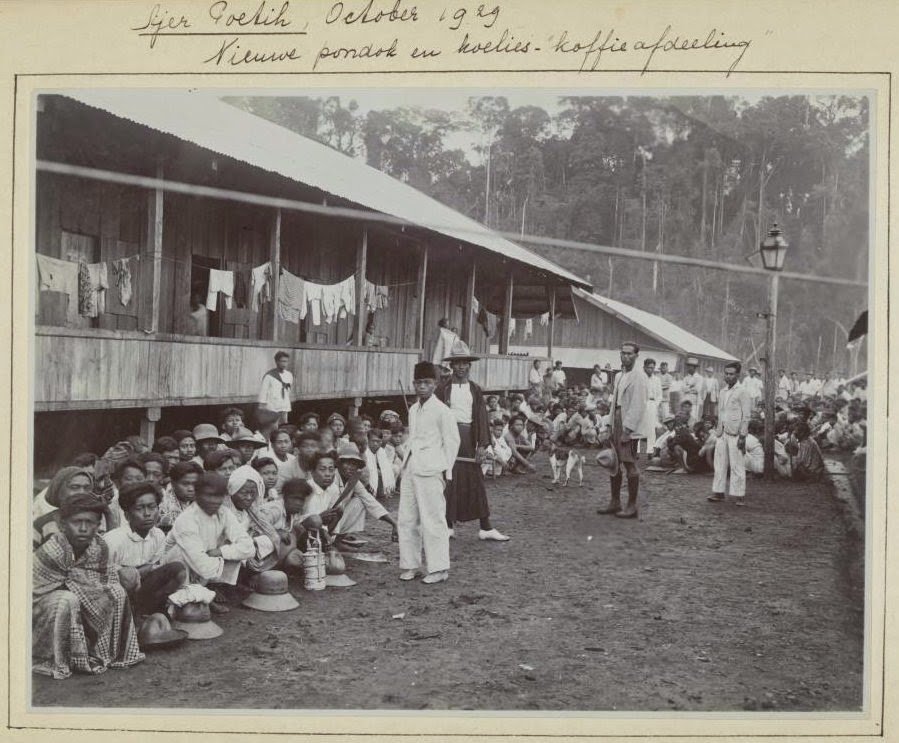 Ajer Poetih, October 1929
Nieuwe pondok en koelies - "koffieafdeeling"